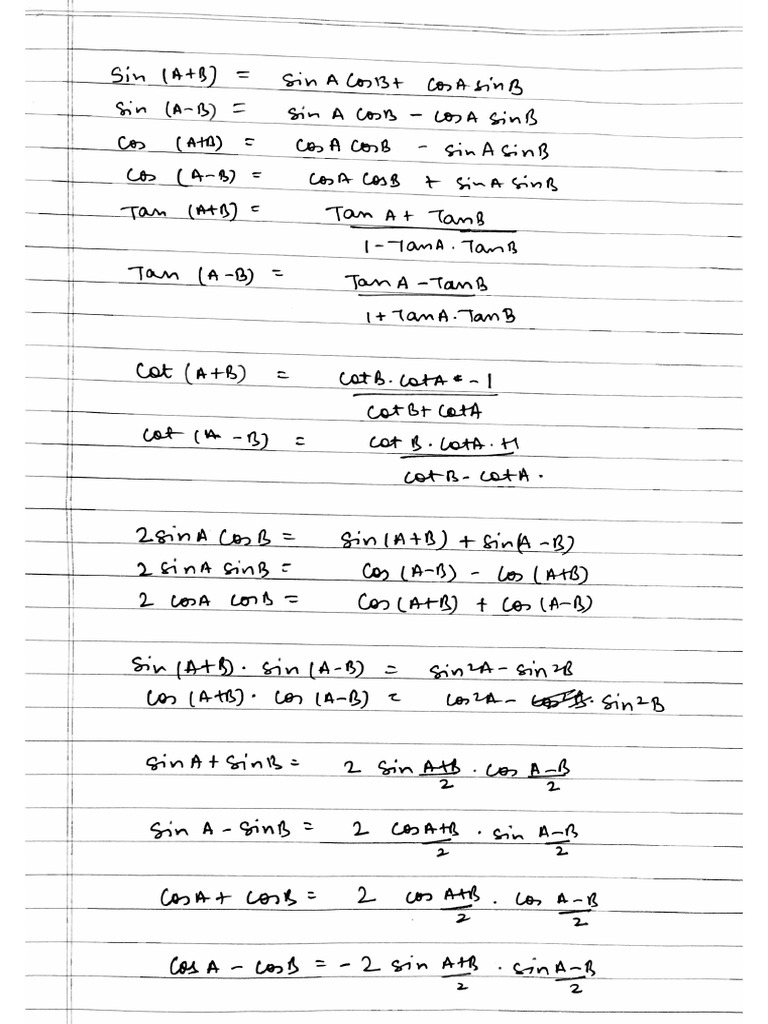 Sin (A+B) = Sin A CosB + CosA sinB
Sin (A-B) = Sin A CosB - CosA SinB
Cos (A+B) = CosA CosB - SinA SinB
Cos (A-B) = CosA CosB + SinA SinB
Tan (A+B) = Tan A + TanB
1-TanA.TanB
Tan (A-B) = Tan A - TanB
1+TanA.TanB
Cot (A+B) = CotB.CotA - 1
CotB+CotA
Cot (A-B) = Cot B.CotA.+1
CotB-CotA.
2SinA CosB = Sin(A+B) + Sin(A-B)
2 SinA SinB = Cos (A-B) - Cos (A+B)
2 CosA CosB = Cos(A+B) + Cos (A-B)
Sin (A+B). Sin (A-B) = Sin²A - Sin²B
Cos (A+B). Cos (A-B) = Cos²A - Sin²B
SinA + SinB = 2 Sin A+B . Cos A-B
2 2
Sin A - SinB = 2 CosA+B . Sin A-B
2 2
CosA + CosB = 2 Cos A+B . Cos A-B
2 2
CosA - CosB = -2 Sin A+B . SinA-B
2 2